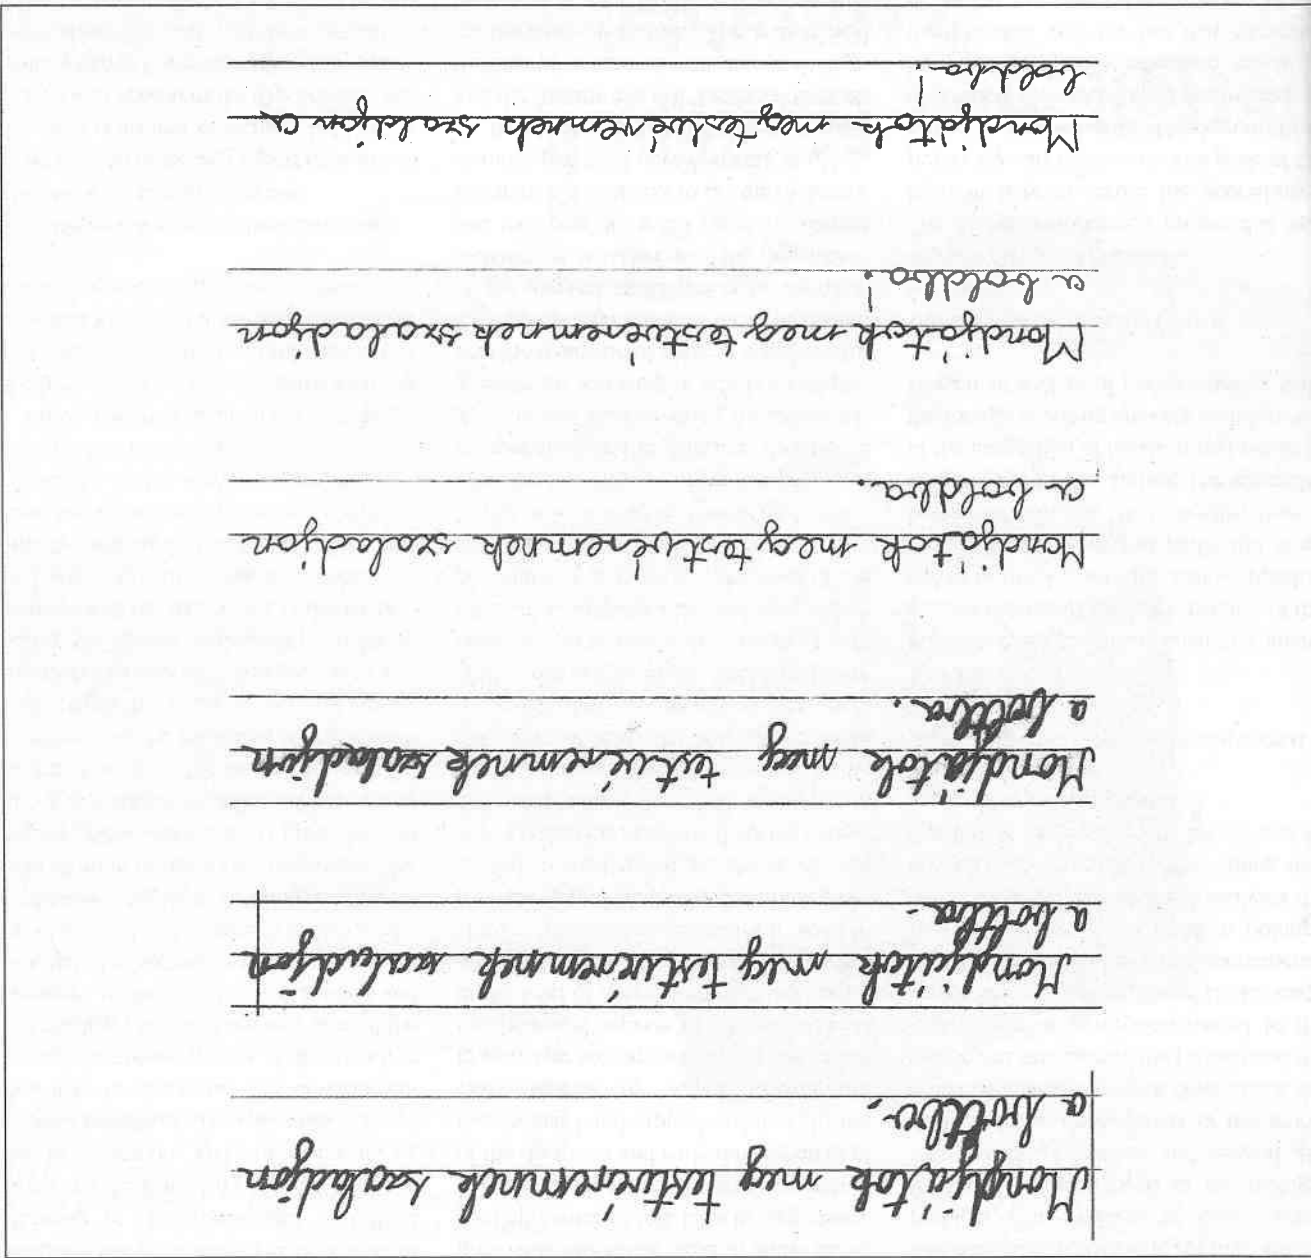 Mondjátok meg testvéremnek szaladjon
a boltba.
Mondjátok meg testvéremnek szaladjon
a boltba.
Mondjátok meg tetvéremnek szaladjon
a boltba.
Mondjatok meg testvéremnek szaladjon
a boldba.
Mondjatok meg testvéremnek szaladjon
a boldba!
Mondjatok meg testvéremnek szaladjon a
boldba!